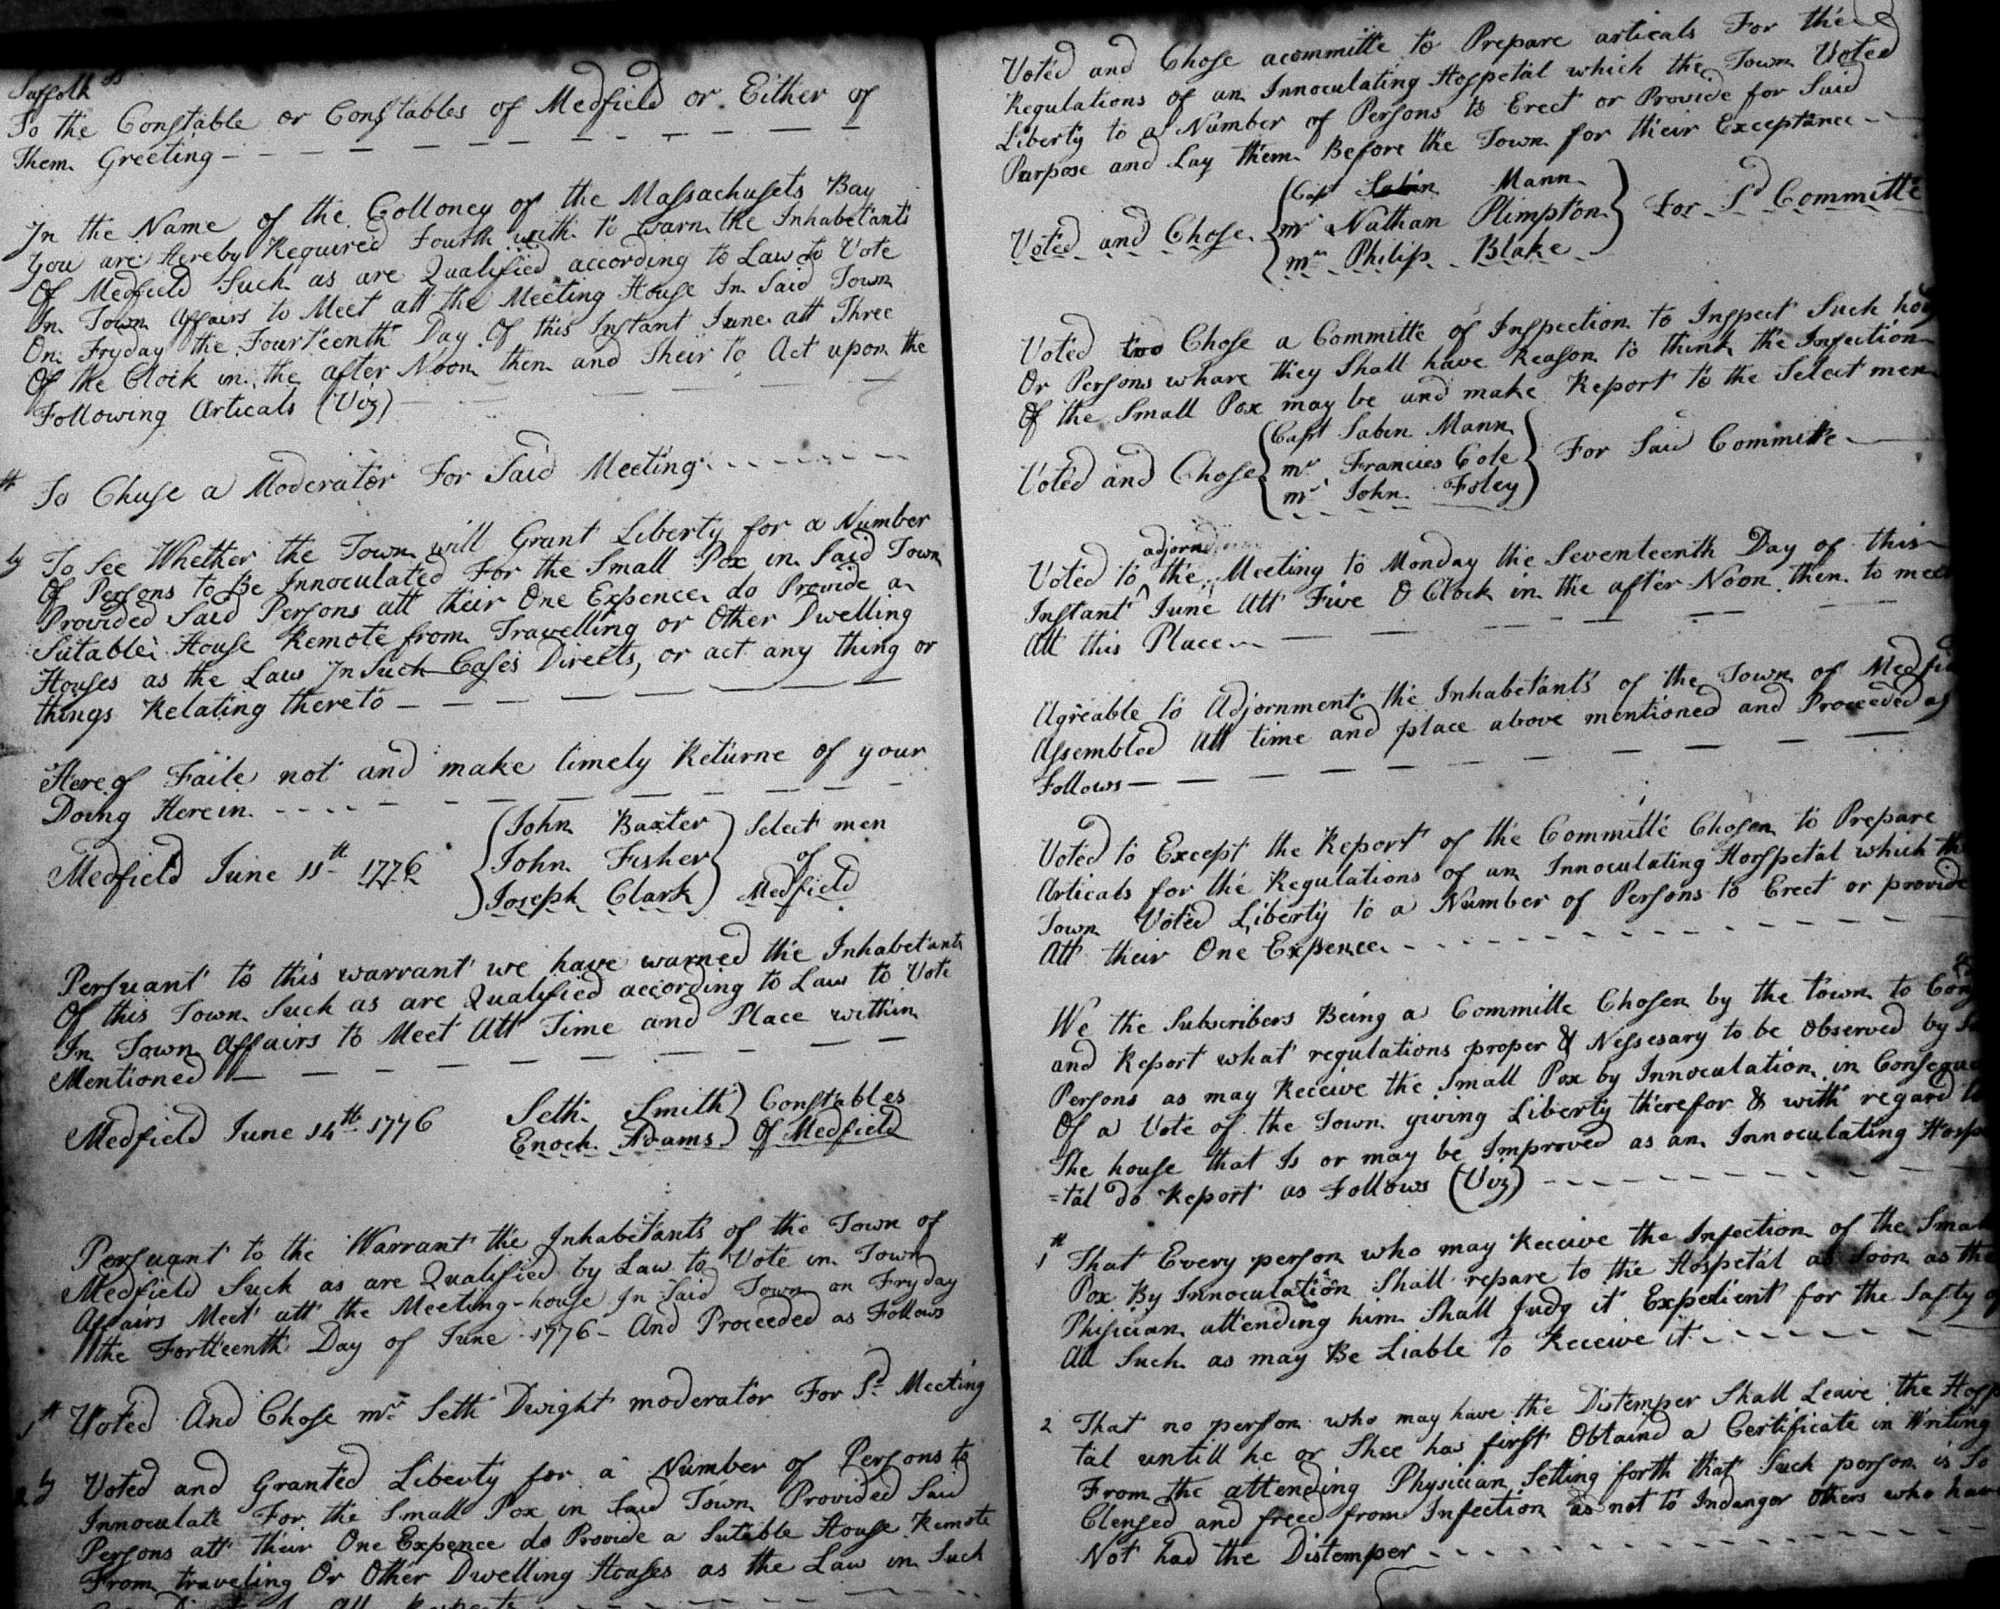 Suffolk ss
To the Constable or Constables of Medfield or Either of
Them Greeting
In the Name of the Colloney of the Massachusets Bay
You are Hereby Required Fourth with to warn the Inhabetants
Of Medfield Such as are Qualified according to Law to Vote
In Town Affairs to Meet att the Meeting House In Said Town
On Fryday the Fourteenth Day Of this Instant June att Three
Of the Clock in the after Noon then and Their to Act upon the
Following Articals (Viz)
To Chuse a Moderator For Said Meeting
ly To See Whether the Town will Grant Liberty for a Number
Of Persons to Be Innoculated For the Small Pox in Said Town
Provided Said Persons att their One Expence do Provide a
Sutable House Remote from Travelling or Other Dwelling
Houses as the Law In Such Cases Directs, or act any thing or
things Relating thereto
Here of Faile not and make timely Returne of your
Doing Herein
John Baxter Select men
Medfield June 11th 1776 John Fisher of
Joseph Clark Medfield
Persuant to this warrant we have warned the Inhabetants
Of this Town Such as are Qualified according to Law to Vote
In Town affairs to Meet Att Time and Place within
Mentioned
Medfield June 14th 1776 Seth Smith Constables
Enoch Adams Of Medfield
Persuant to the Warrant the Inhabetants of the Town of
Medfield Such as are Qualified by Law to Vote in Town
Affairs Meet att the Meeting-house In Said Town on Fryday
the Fortteenth Day of June 1776 - And Proceeded as Follows
1st Voted And Chose mr Seth Dwight moderator For Sd Meeting
2ly Voted and Granted Liberty for a Number of Persons to
Innoculate For the Small Pox in Said Town Provided Said
Persons att their One Expence do Provide a Sutable House Remote
From traveling Or Other Dwelling Houses as the Law in Such
All Respects
Voted and Chose acommitte to Prepare articals For the
Regulations of an Innoculating Hospetal which the Town Voted
Liberty to a Number of Persons to Erect or Provide for Said
Purpose and Lay them Before the Town for their Exceptance
Capt Sabin Mann
Voted and Chose mr Nathan Plimpton For Sd Committe
mr Philip Blake
Voted two Chose a Committe of Inspection to Inspect Such
Or Persons whare they Shall have Reason to think the Infection
Of the Small Pox may be and make Report to the Select men
Capt Sabin Mann
Voted and Chose mr Francies Cole For Said Committe
mr John Foley
adjorn
Voted to the Meeting to Monday the Seventeenth Day of this
Instant June Att Five O Clock in the after Noon then to meet
Att this Place
Agreable to Adjornment the Inhabetants of the Town of
Assembled Att time and place above mentioned and Proceeded as
Follows
Voted to Except the Report of the Committe Chosen to Prepare
Articals for the Regulations of an Innoculating Horspetal which
Town Voted Liberty to a Number of Persons to Erect or provide
Att their One Expence
We the Subscribers Being a Committe Chosen by the town to
and Report what regulations proper & Nessesary to be observed by
Persons as may Receive the Small Pox by Innoculation in
Of a Vote of the Town giving Liberty therefor & with regard
The house that Is or may be Improved as an Innoculating
=tal do Report as Follows (Viz)
1st That Every person who may Receive the Infection of the
Pox By Innoculation Shall repare to the Hospetal as Soon as the
Phisician attending him Shall Judg it Expedient for the Safty of
All Such as may Be Liable to Receive it
2 That no person who may have the Distemper Shall Leave the
tal untill he or Shee has first Obtaind a Certificate in Writing
From the attending Physician Setting forth that Such person is So
Clensed and freed from Infection as not to Indanger others who have
Not had the Distemper